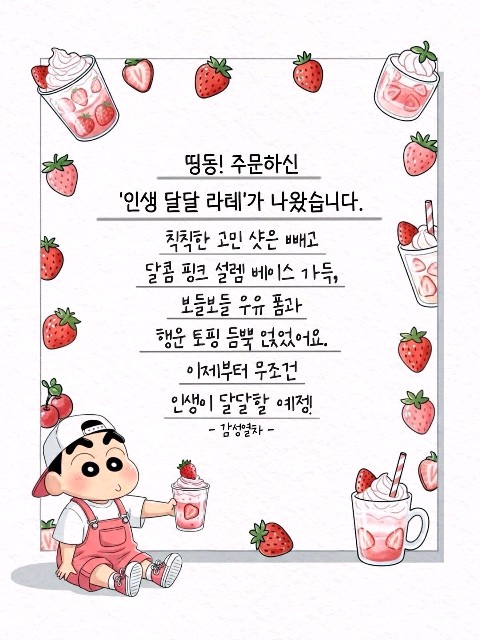 띵동! 주문하신
'인생 달달 라떼'가 나왔습니다.
칙칙한 고민 샷은 빼고
달콤 핑크 설렘 베이스 가득,
보들보들 우유 폼과
행운 토핑 듬뿍 얹었어요.
이제부터 무조건
인생이 달달할 예정!
- 감성열차 -